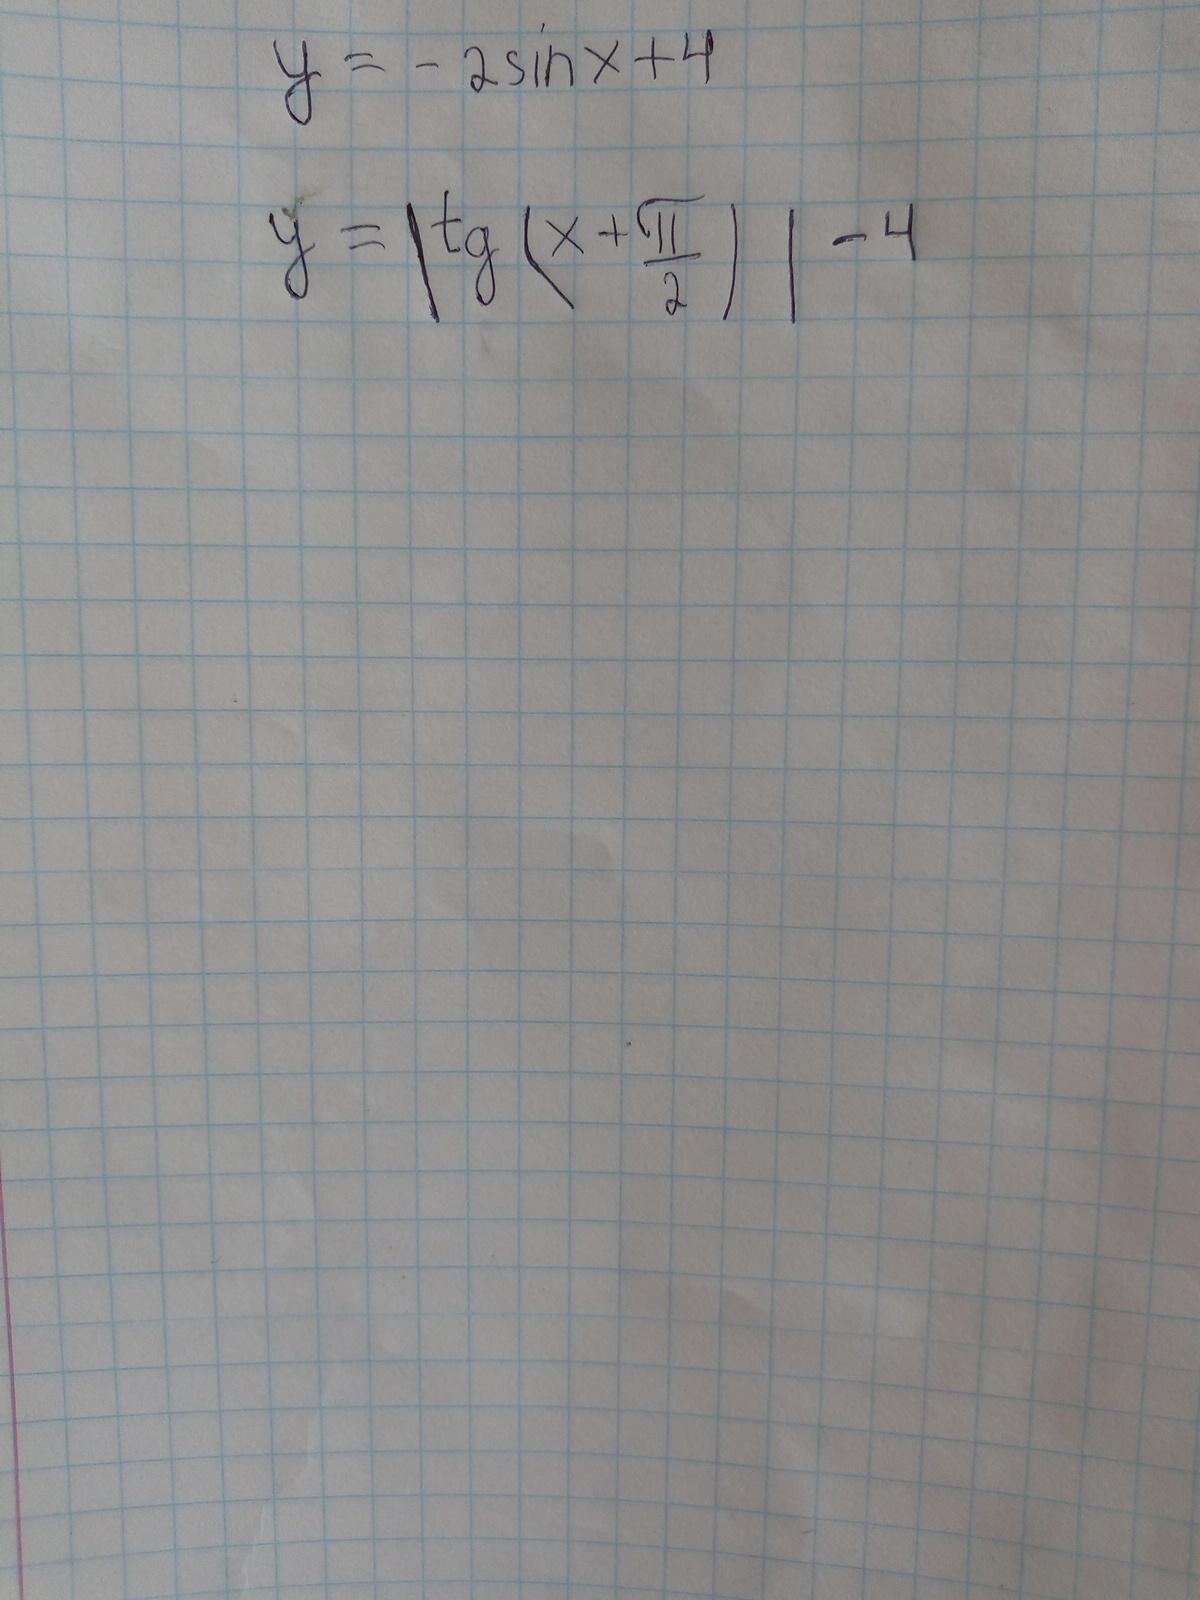 y = - 2sinx+4
y = |tg (x + π/2) | - 4